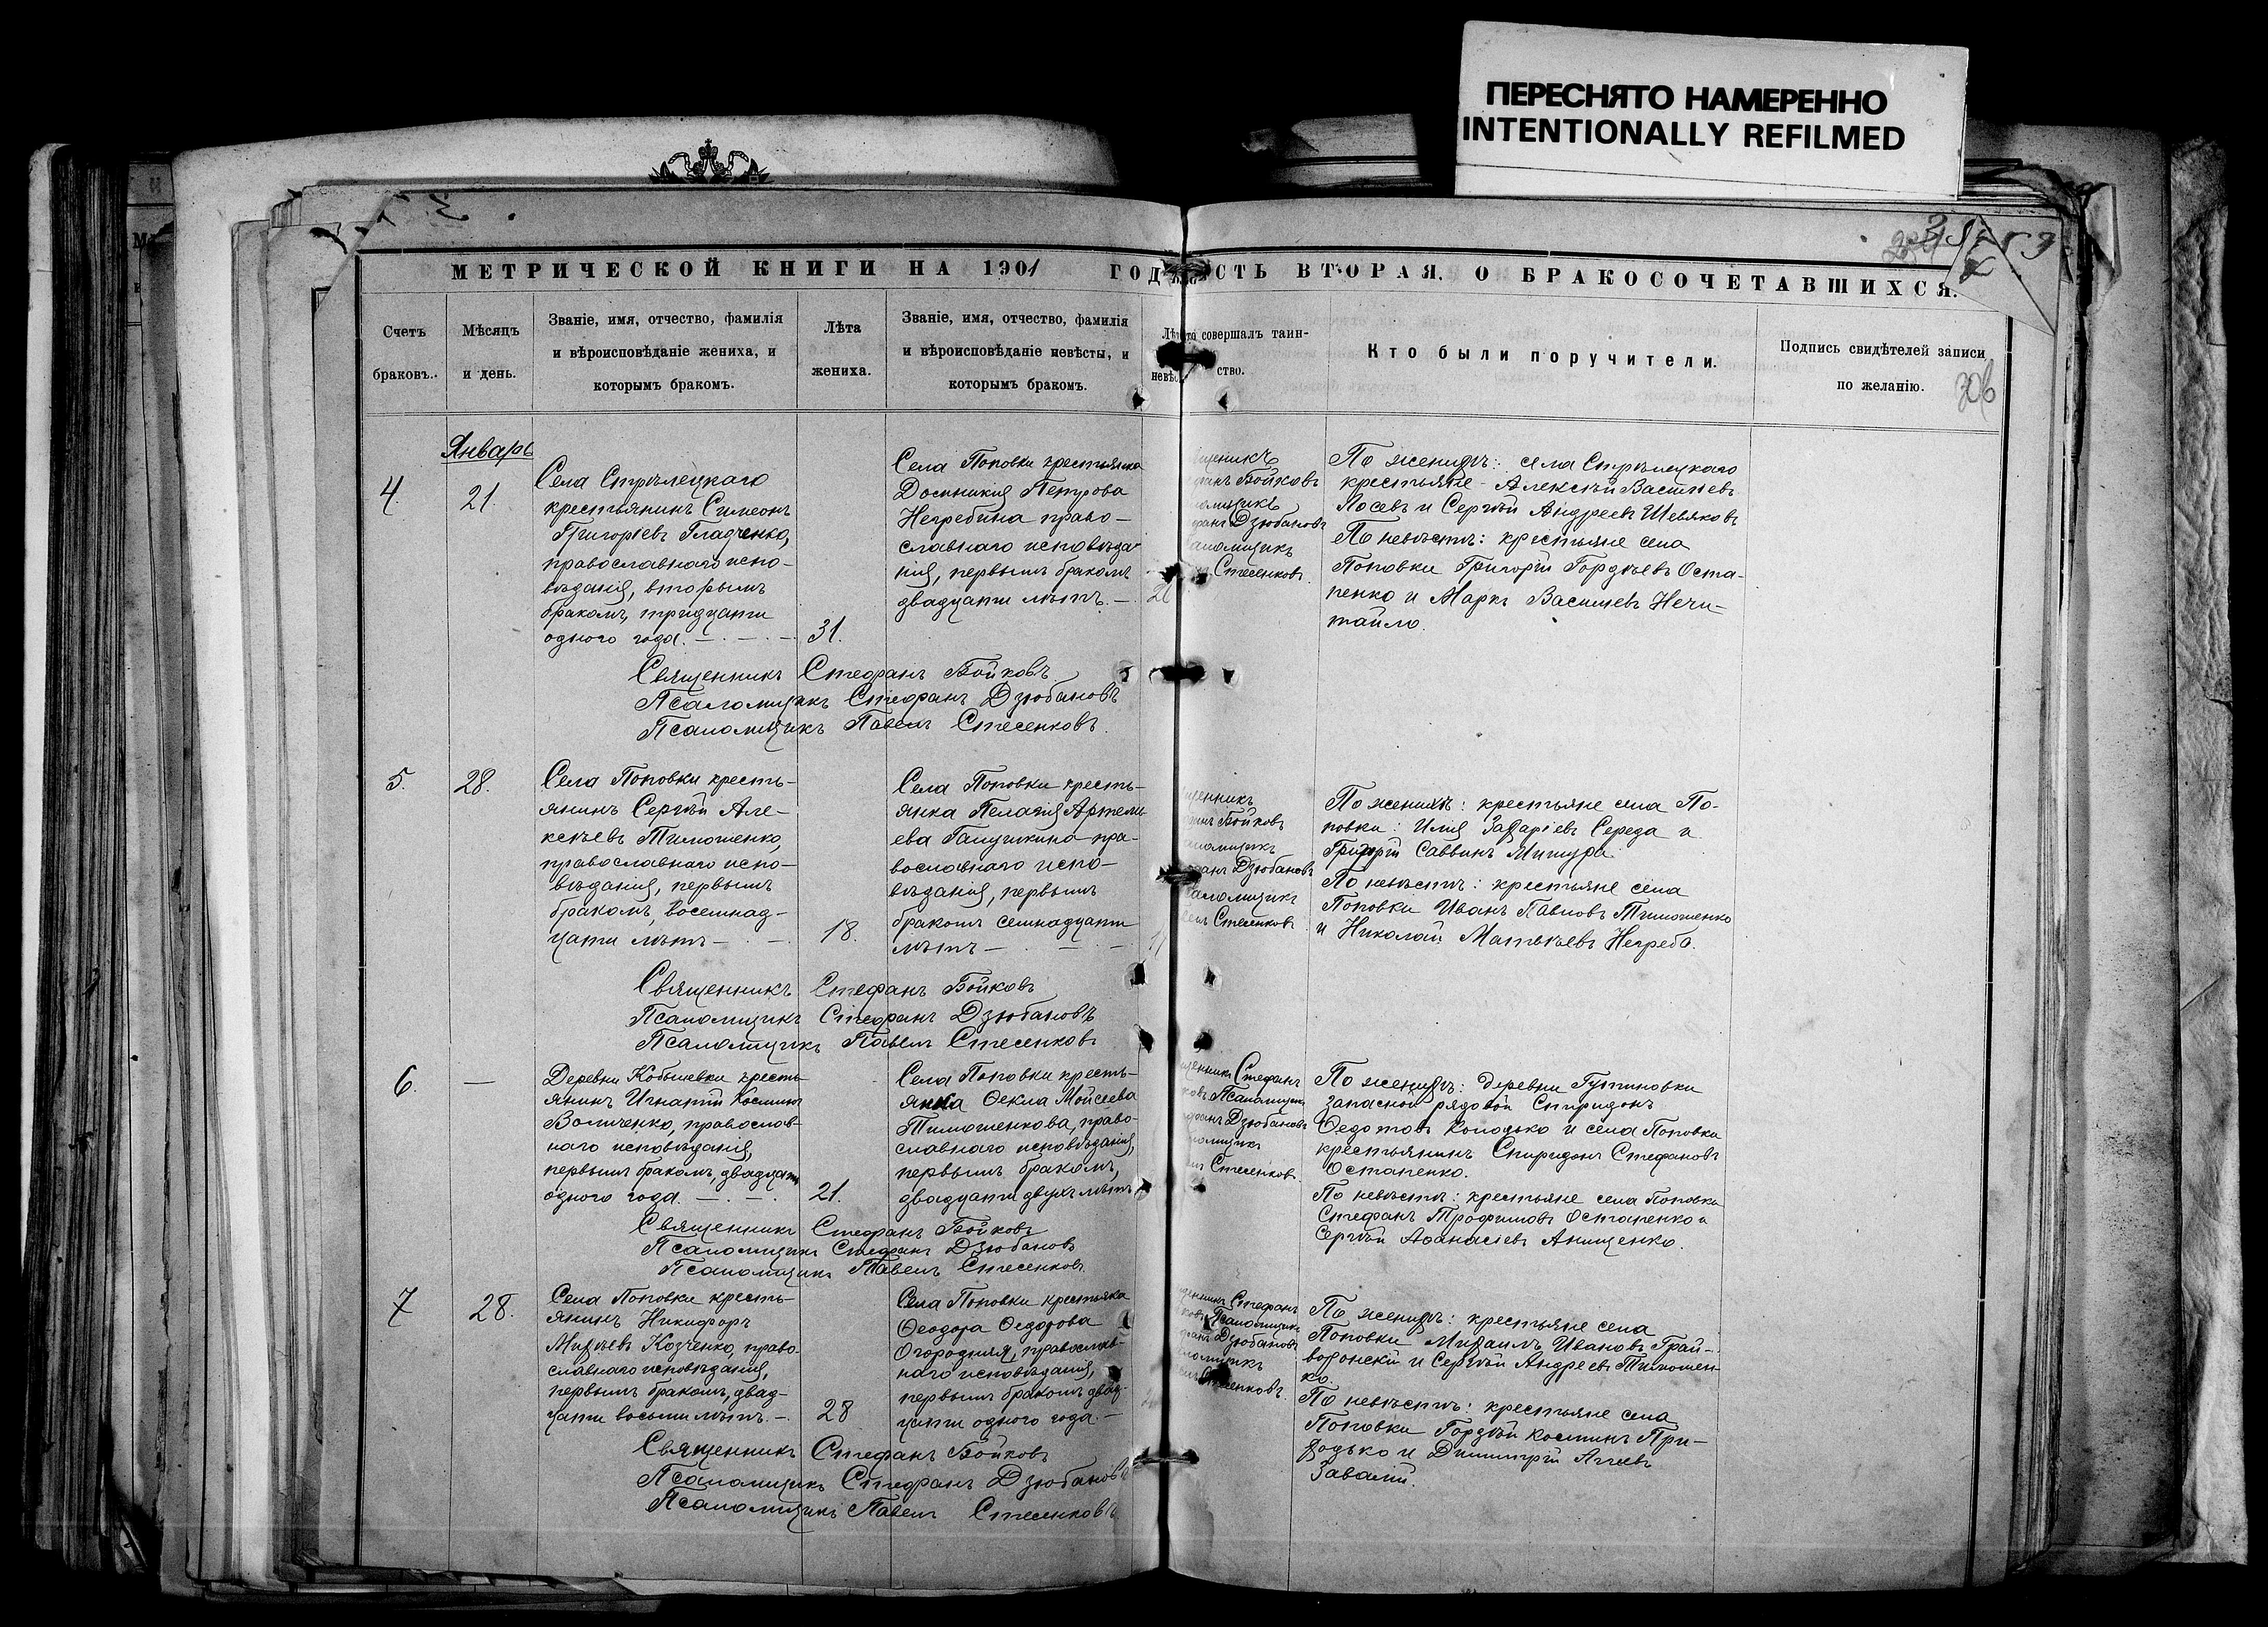 ПЕРЕСНЯТО НАМЕРЕННО
INTENTIONALLY REFILMED
МЕТРИЧЕСКОЙ КНИГИ НА 1901 ГОД
СТЬ ВТОРАЯ. О БРАКОСОЧЕТАВШИХСЯ.
Счетъ
браковъ.
Мѣсяцъ
и день.
Званіе, имя, отчество, фамилія
и вѣроисповѣданіе жениха, и
которымъ бракомъ.
Лѣта
жениха.
Званіе, имя, отчество, фамилія
и вѣроисповѣданіе невѣсты, и
которымъ бракомъ.
совершалъ таин-
ство.
Кто были поручители.
Подпись свидѣтелей записи
по желанію.
306
Январь
4.
21.
Села Стрѣлецкаго
крестьянинъ Симеонъ
Григоріевъ Гладченко,
православнаго испо-
вѣданія, вторымъ
бракомъ, тридцати
одного года.
31.
Села Поповки крестьянка
Домникія Петрова
Негребина право-
славнаго исповѣда-
нія, первымъ бракомъ
двадцати лѣтъ.
Бойковъ
Дзюбановъ
Стесенковъ.
По женихѣ: села Стрѣлецкаго
крестьяне - Алексѣй Васильевъ
Лосевъ и Сергѣй Андреевъ Шевяковъ
По невѣстѣ: крестьяне села
Поповки Григорій Гордѣевъ Оста-
пенко и Маркъ Васильевъ Нечи-
тайло.
Священникъ Стефанъ Бойковъ
Псаломщикъ Стефанъ Дзюбановъ
Псаломщикъ Павелъ Стесенковъ.
5.
28.
Села Поповки кресть-
янинъ Сергѣй Але-
ксѣевъ Тимошенко,
православнаго испо-
вѣданія, первымъ
бракомъ, восемнад-
цати лѣтъ
18.
Села Поповки кресть-
янка Пелагія Артемь-
ева Галушкина пра-
вославнаго испо-
вѣданія, первымъ
бракомъ семнадцати
лѣтъ
Бойковъ
Дзюбановъ
Стесенковъ
По женихѣ: крестьяне села По-
повки: Илія Захаріевъ Середа и
Григорій Саввинъ Мишура.
По невѣстѣ: крестьяне села
Поповки Иванъ Павловъ Тимошенко
и Николай Матвѣевъ Негреба.
Священникъ Стефанъ Бойковъ
Псаломщикъ Стефанъ Дзюбановъ
Псаломщикъ Павелъ Стесенковъ
6.
Деревни Кобылевки кресть-
янинъ Игнатій Косминъ
Воличенко, православ-
наго исповѣданія,
первымъ бракомъ, двадцати
одного года.
21.
Села Поповки кресть-
янка Ѳекла Мойсеева
Тимошенкова, право-
славнаго исповѣданія,
первымъ бракомъ,
двадцати двухъ лѣтъ
Стефанъ
Псаломщикъ
Дзюбановъ
Стесенковъ.
По женихѣ: деревни
запасной рядовой Спиридонъ
Ѳедотовъ Колодько и села Поповки
крестьянинъ Спиридонъ Стефановъ
Остапенко.
По невѣстѣ: крестьяне села Поповки
Стефанъ Трофимовъ Остапенко и
Сергѣй Аѳанасіевъ Анищенко.
Священникъ Стефанъ Бойковъ
Псаломщикъ Стефанъ Дзюбановъ
Псаломщикъ Павелъ Стесенковъ
7
28.
Села Поповки кресть-
янинъ Никифоръ
Михѣевъ Козченко, право-
славнаго исповѣданія,
первымъ бракомъ, двад-
цати восьми лѣтъ.
28
Села Поповки крестьянка
Ѳеодора Ѳедорова
Огородняя, православ-
наго исповѣданія,
первымъ бракомъ двад-
цати одного года.
Стефанъ
Псаломщикъ
Дзюбановъ
По женихѣ: крестьяне села
Поповки Михаилъ Ивановъ Грай-
воронскій и Сергѣй Андреевъ Тимошен-
ко.
По невѣстѣ: крестьяне села
Поповки Гордѣй Косминъ При-
ходько и Димитрій Аггеевъ
Завалій.
Священникъ Стефанъ Бойковъ
Псаломщикъ Стефанъ Дзюбановъ
Псаломщикъ Павелъ Стесенковъ.